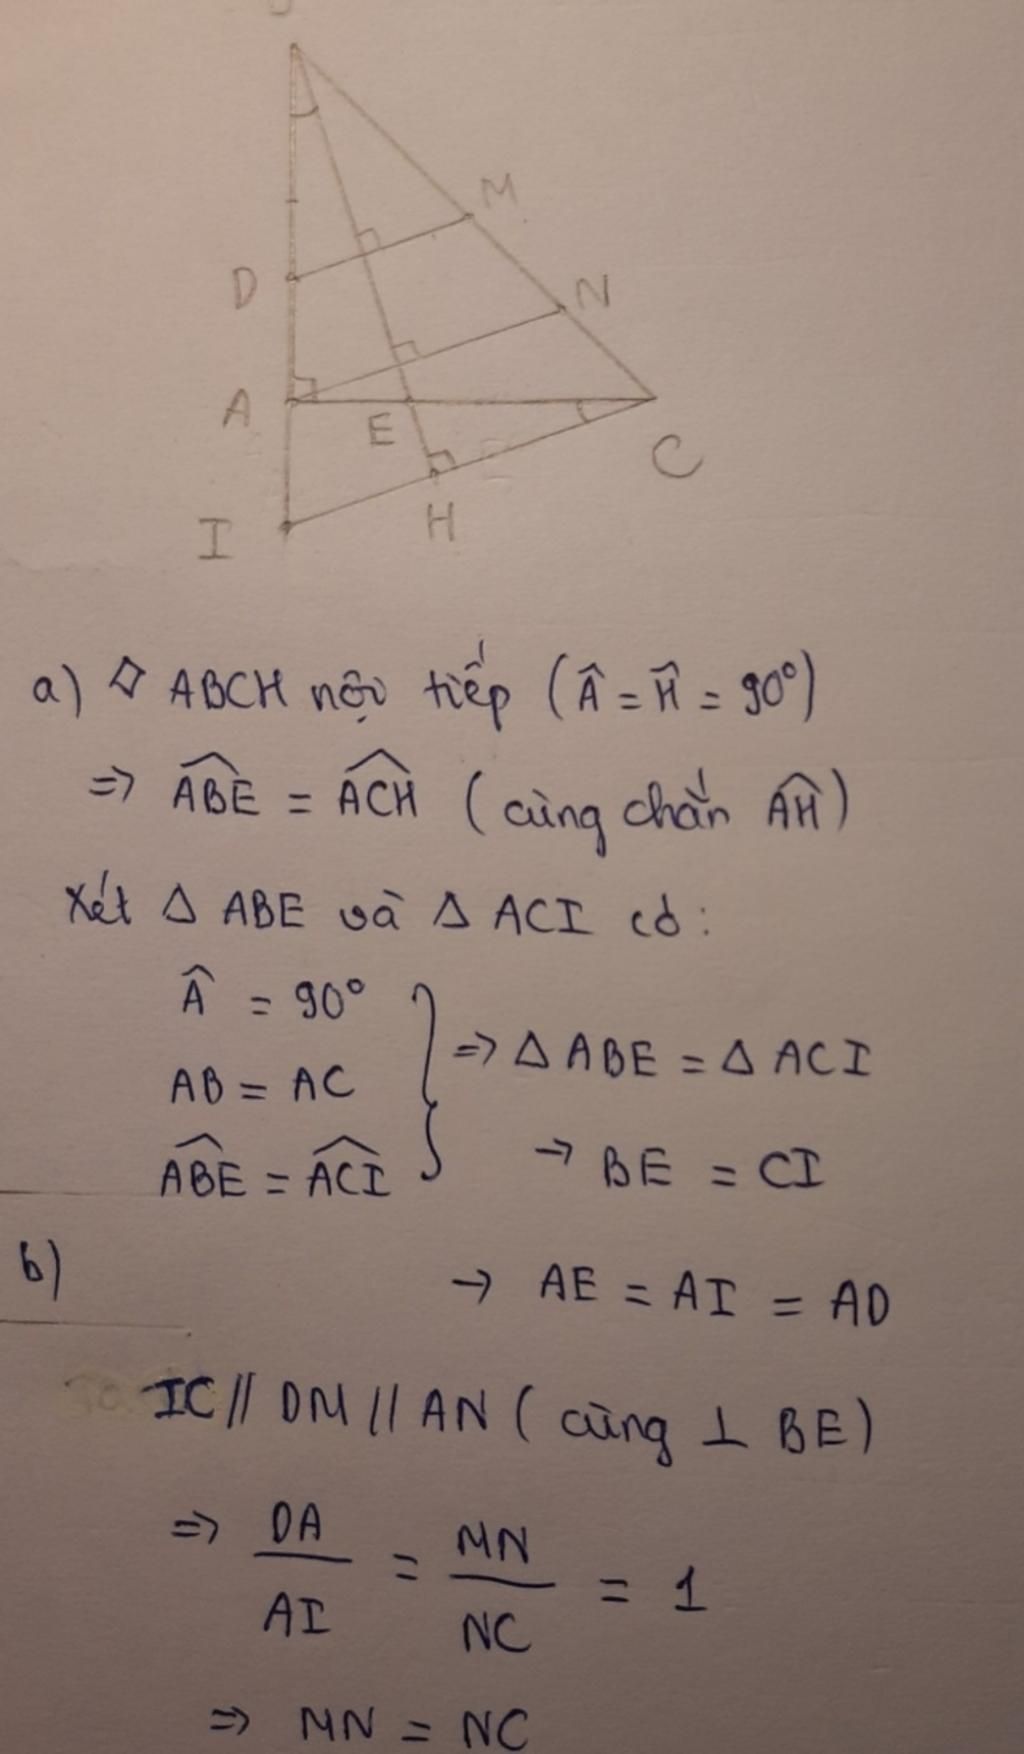 M
D
N
A
E
C
I
H
a) ◇ ABCH nội tiếp (Â = Ĥ = 90°)
=> \widehat{ABE} = \widehat{ACH} (cùng chắn \widehat{AH})
Xét Δ ABE và Δ ACI có:
Â = 90°
AB = AC
=> Δ ABE = Δ ACI
\widehat{ABE} = \widehat{ACI}
→ BE = CI
b)
→ AE = AI = AD
IC // DM // AN (cùng ⊥ BE)
=> DA/AI = MN/NC = 1
=> MN = NC